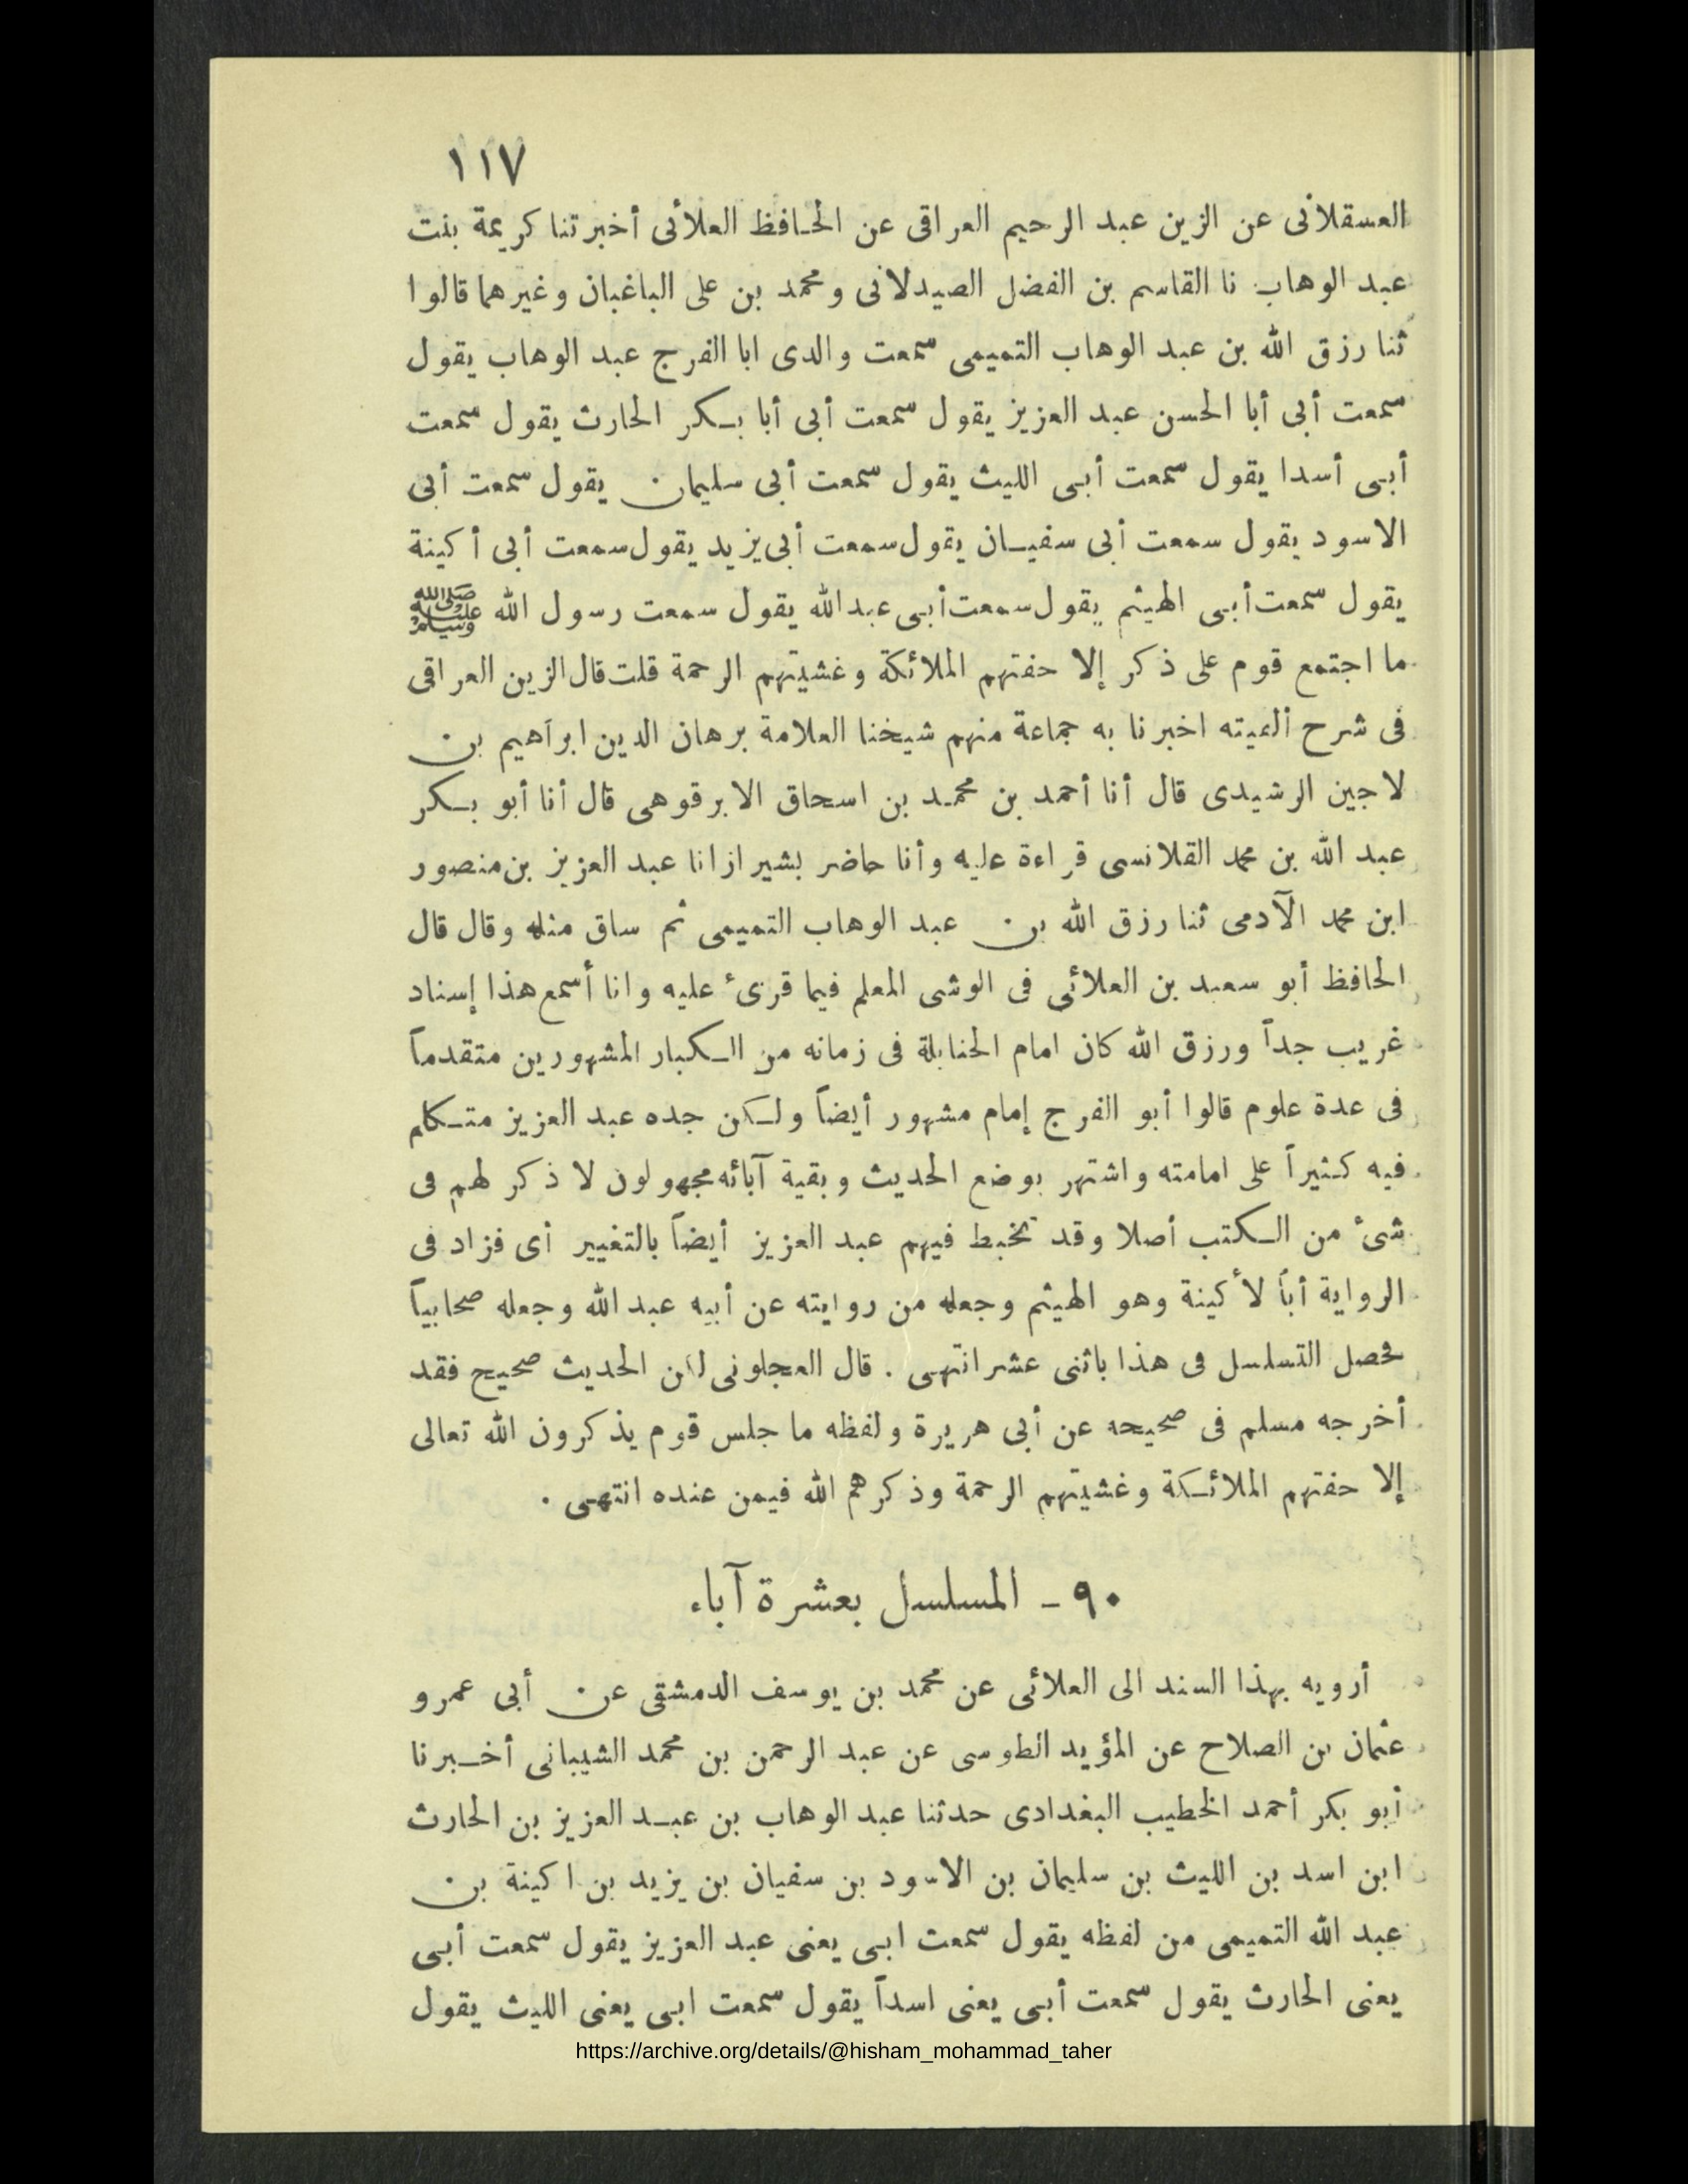 ١١٧
العسقلانى عن الزين عبد الرحيم العراقى عن الحافظ العلائى أخبرتنا كريمة بنت
عبد الوهاب نا القاسم بن الفضل الصيدلانى ومحمد بن على الباغبان وغيرهما قالوا
ثنا رزق الله بن عبد الوهاب التميمى سمعت والدى ابا الفرج عبد الوهاب يقول
سمعت أبى أبا الحسن عبد العزيز يقول سمعت أبى أبا بكر الحارث يقول سمعت
أبى أسدا يقول سمعت أبى الليث يقول سمعت أبى سليمان يقول سمعت أبى
الاسود يقول سمعت أبى سفيان يقول سمعت أبى يزيد يقول سمعت أبى أكينة
يقول سمعت أبى الهيثم يقول سمعت أبى عبدالله يقول سمعت رسول الله ﷺ
ما اجتمع قوم على ذكر إلا حفتهم الملائكة وغشيتهم الرحمة قلت قال الزين العراقى
فى شرح ألفيته اخبرنا به جماعة منهم شيخنا العلامة برهان الدين ابراهيم بن
لاجين الرشيدى قال أنا أحمد بن محمد بن اسحاق الابرقوهى قال أنا أبو بكر
عبد الله بن محمد القلانسى قراءة عليه وأنا حاضر بشيراز انا عبد العزيز بن منصور
ابن محمد الآدمى ثنا رزق الله بن عبد الوهاب التميمى ثم ساق مثله وقال قال
الحافظ أبو سعيد بن العلائى فى الوشى المعلم فيما قرىء عليه وانا أسمع هذا إسناد
غريب جداً ورزق الله كان امام الحنابلة فى زمانه من الكبار المشهورين متقدماً
فى عدة علوم قالوا أبو الفرج إمام مشهور أيضاً ولكن جده عبد العزيز متكلم
فيه كثيراً على امامته واشتهر بوضع الحديث وبقية آبائه مجهولون لا ذكر لهم فى
شىء من الكتب أصلا وقد تخبط فيهم عبد العزيز أيضاً بالتغيير أى فزاد فى
الرواية أباً لأكينة وهو الهيثم وجعله من روايته عن أبيه عبد الله وجعله صحابياً
فحصل التسلسل فى هذا باثنى عشر انتهى . قال العجلونى لكن الحديث صحيح فقد
أخرجه مسلم فى صحيحه عن أبى هريرة ولفظه ما جلس قوم يذكرون الله تعالى
إلا حفتهم الملائكة وغشيتهم الرحمة وذكرهم الله فيمن عنده انتهى .
٩٠ - المسلسل بعشرة آباء
أرويه بهذا السند الى العلائى عن محمد بن يوسف الدمشقى عن أبى عمرو
عثمان بن الصلاح عن المؤيد الطوسى عن عبد الرحمن بن محمد الشيبانى أخبرنا
أبو بكر أحمد الخطيب البغدادى حدثنا عبد الوهاب بن عبد العزيز بن الحارث
ابن اسد بن الليث بن سليمان بن الاسود بن سفيان بن يزيد بن اكينة بن
عبد الله التميمى من لفظه يقول سمعت ابى يعنى عبد العزيز يقول سمعت أبى
يعنى الحارث يقول سمعت أبى يعنى اسداً يقول سمعت ابى يعنى الليث يقول
https://archive.org/details/@hisham_mohammad_taher